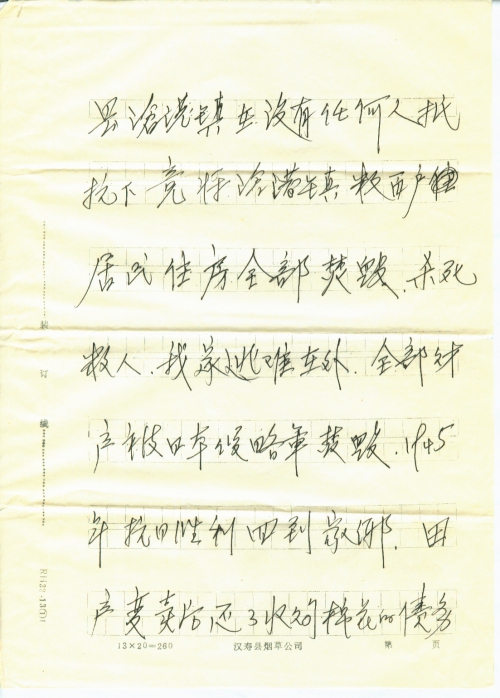 县沧港镇在没有任何人抵
抗下竟将沧港镇数百户
居民住房全部焚毁.杀死
数人.我家逃难在外.全部财
产被日本侵略军焚毁.1945
年抗日胜利回到家乡.田
产变卖后还了收购棉花的债务
装
订
线
13×20=260 汉寿县烟草公司 第 页